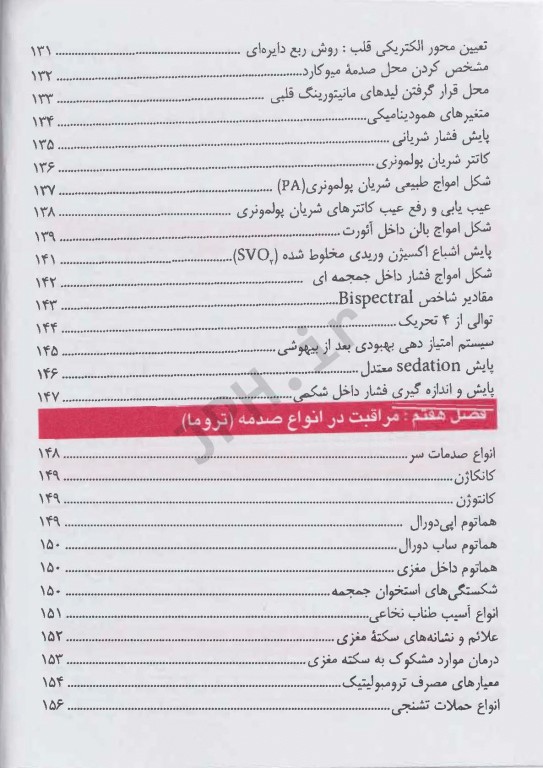 تعیین محور الکتریکی قلب : روش ربع دایره‌ای ........ ۱۳۱
مشخص کردن محل صدمهٔ میوکارد ........ ۱۳۲
محل قرار گرفتن لیدهای مانیتورینگ قلبی ........ ۱۳۳
متغیرهای همودینامیکی ........ ۱۳۴
پایش فشار شریانی ........ ۱۳۵
کاتتر شریان پولمونری ........ ۱۳۶
شکل امواج طبیعی شریان پولمونری(PA) ........ ۱۳۷
عیب یابی و رفع عیب کاتترهای شریان پولمونری ........ ۱۳۸
شکل امواج بالن داخل آئورت ........ ۱۳۹
پایش اشباع اکسیژن وریدی مخلوط شده (SVO۲) ........ ۱۴۱
شکل امواج فشار داخل جمجمه ای ........ ۱۴۲
مقادیر شاخص Bispectral ........ ۱۴۳
توالی از ۴ تحریک ........ ۱۴۴
سیستم امتیاز دهی بهبودی بعد از بیهوشی ........ ۱۴۵
پایش sedation معتدل ........ ۱۴۶
پایش و اندازه گیری فشار داخل شکمی ........ ۱۴۷
فصل هفتم : مراقبت در انواع صدمه (تروما)
انواع صدمات سر ........ ۱۴۸
کانکاژن ........ ۱۴۹
کانتوژن ........ ۱۴۹
هماتوم اپی‌دورال ........ ۱۴۹
هماتوم ساب دورال ........ ۱۵۰
هماتوم داخل مغزی ........ ۱۵۰
شکستگی‌های استخوان جمجمه ........ ۱۵۰
انواع آسیب طناب نخاعی ........ ۱۵۱
علائم و نشانه‌های سکتهٔ مغزی ........ ۱۵۲
درمان موارد مشکوک به سکته مغزی ........ ۱۵۳
معیارهای مصرف ترومبولیتیک ........ ۱۵۴
انواع حملات تشنجی ........ ۱۵۶
JPH.ir